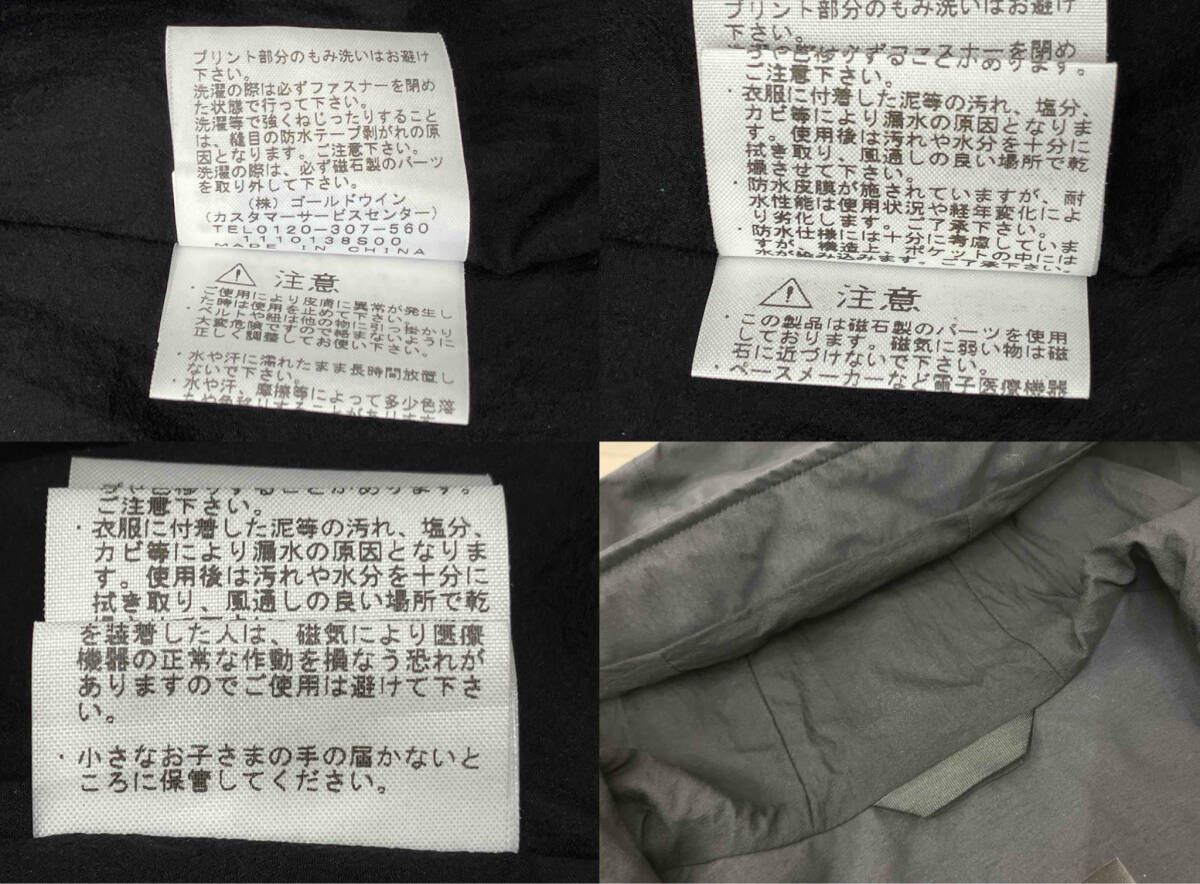 プリント部分のもみ洗いはお避け
下さい。
洗濯の際は必ずファスナーを閉め
た状態で行って下さい。
洗濯等で強くねじったりすること
は、縫目の防水テープ剥がれの原
因となります。ご注意下さい。
洗濯の際は、必ず磁石製のパーツ
を取り外して下さい。
(株) ゴールドウイン
(カスタマーサービスセンター)
TEL0120-307-560
1110138S00
MADE IN CHINA
注意
・ご使用により皮膚に異常が発生し
た時は使用を止めて下さい。
・ベルトや紐は他の物に引っ掛かり
大変危険ですので絡まないように
正しく調整してお使い下さい。
・水や汗に濡れたまま長時間放置し
ないで下さい。
・水や汗、摩擦等によって多少色落
ちや色移りすることがあります
プリント部分のもみ洗いはお避け
下さい。
洗濯の際は必ずファスナーを閉め
ちや色移りすることがあります。
ご注意下さい。
・衣服に付着した泥等の汚れ、塩分、
カビ等により漏水の原因となりま
す。使用後は汚れや水分を十分に
拭き取り、風通しの良い場所で乾
燥させて下さい。
・防水皮膜が施されていますが、耐
水性能は使用状況や経年変化によ
り劣化します。ご了承下さい。
・防水仕様には十分に考慮していま
すが、構造上、ポケットの中には
水が染み込みます。ご了承下さい。
注意
・この製品は磁石製のパーツを使用
しております。磁気に弱い物は磁
石に近づけないで下さい。
・ペースメーカーなど電子医療機器
ちや色移りすることがあります。
ご注意下さい。
・衣服に付着した泥等の汚れ、塩分、
カビ等により漏水の原因となりま
す。使用後は汚れや水分を十分に
拭き取り、風通しの良い場所で乾
を装着した人は、磁気により医療
機器の正常な作動を損なう恐れが
ありますのでご使用は避けて下さ
い。
・小さなお子さまの手の届かないと
ころに保管してください。